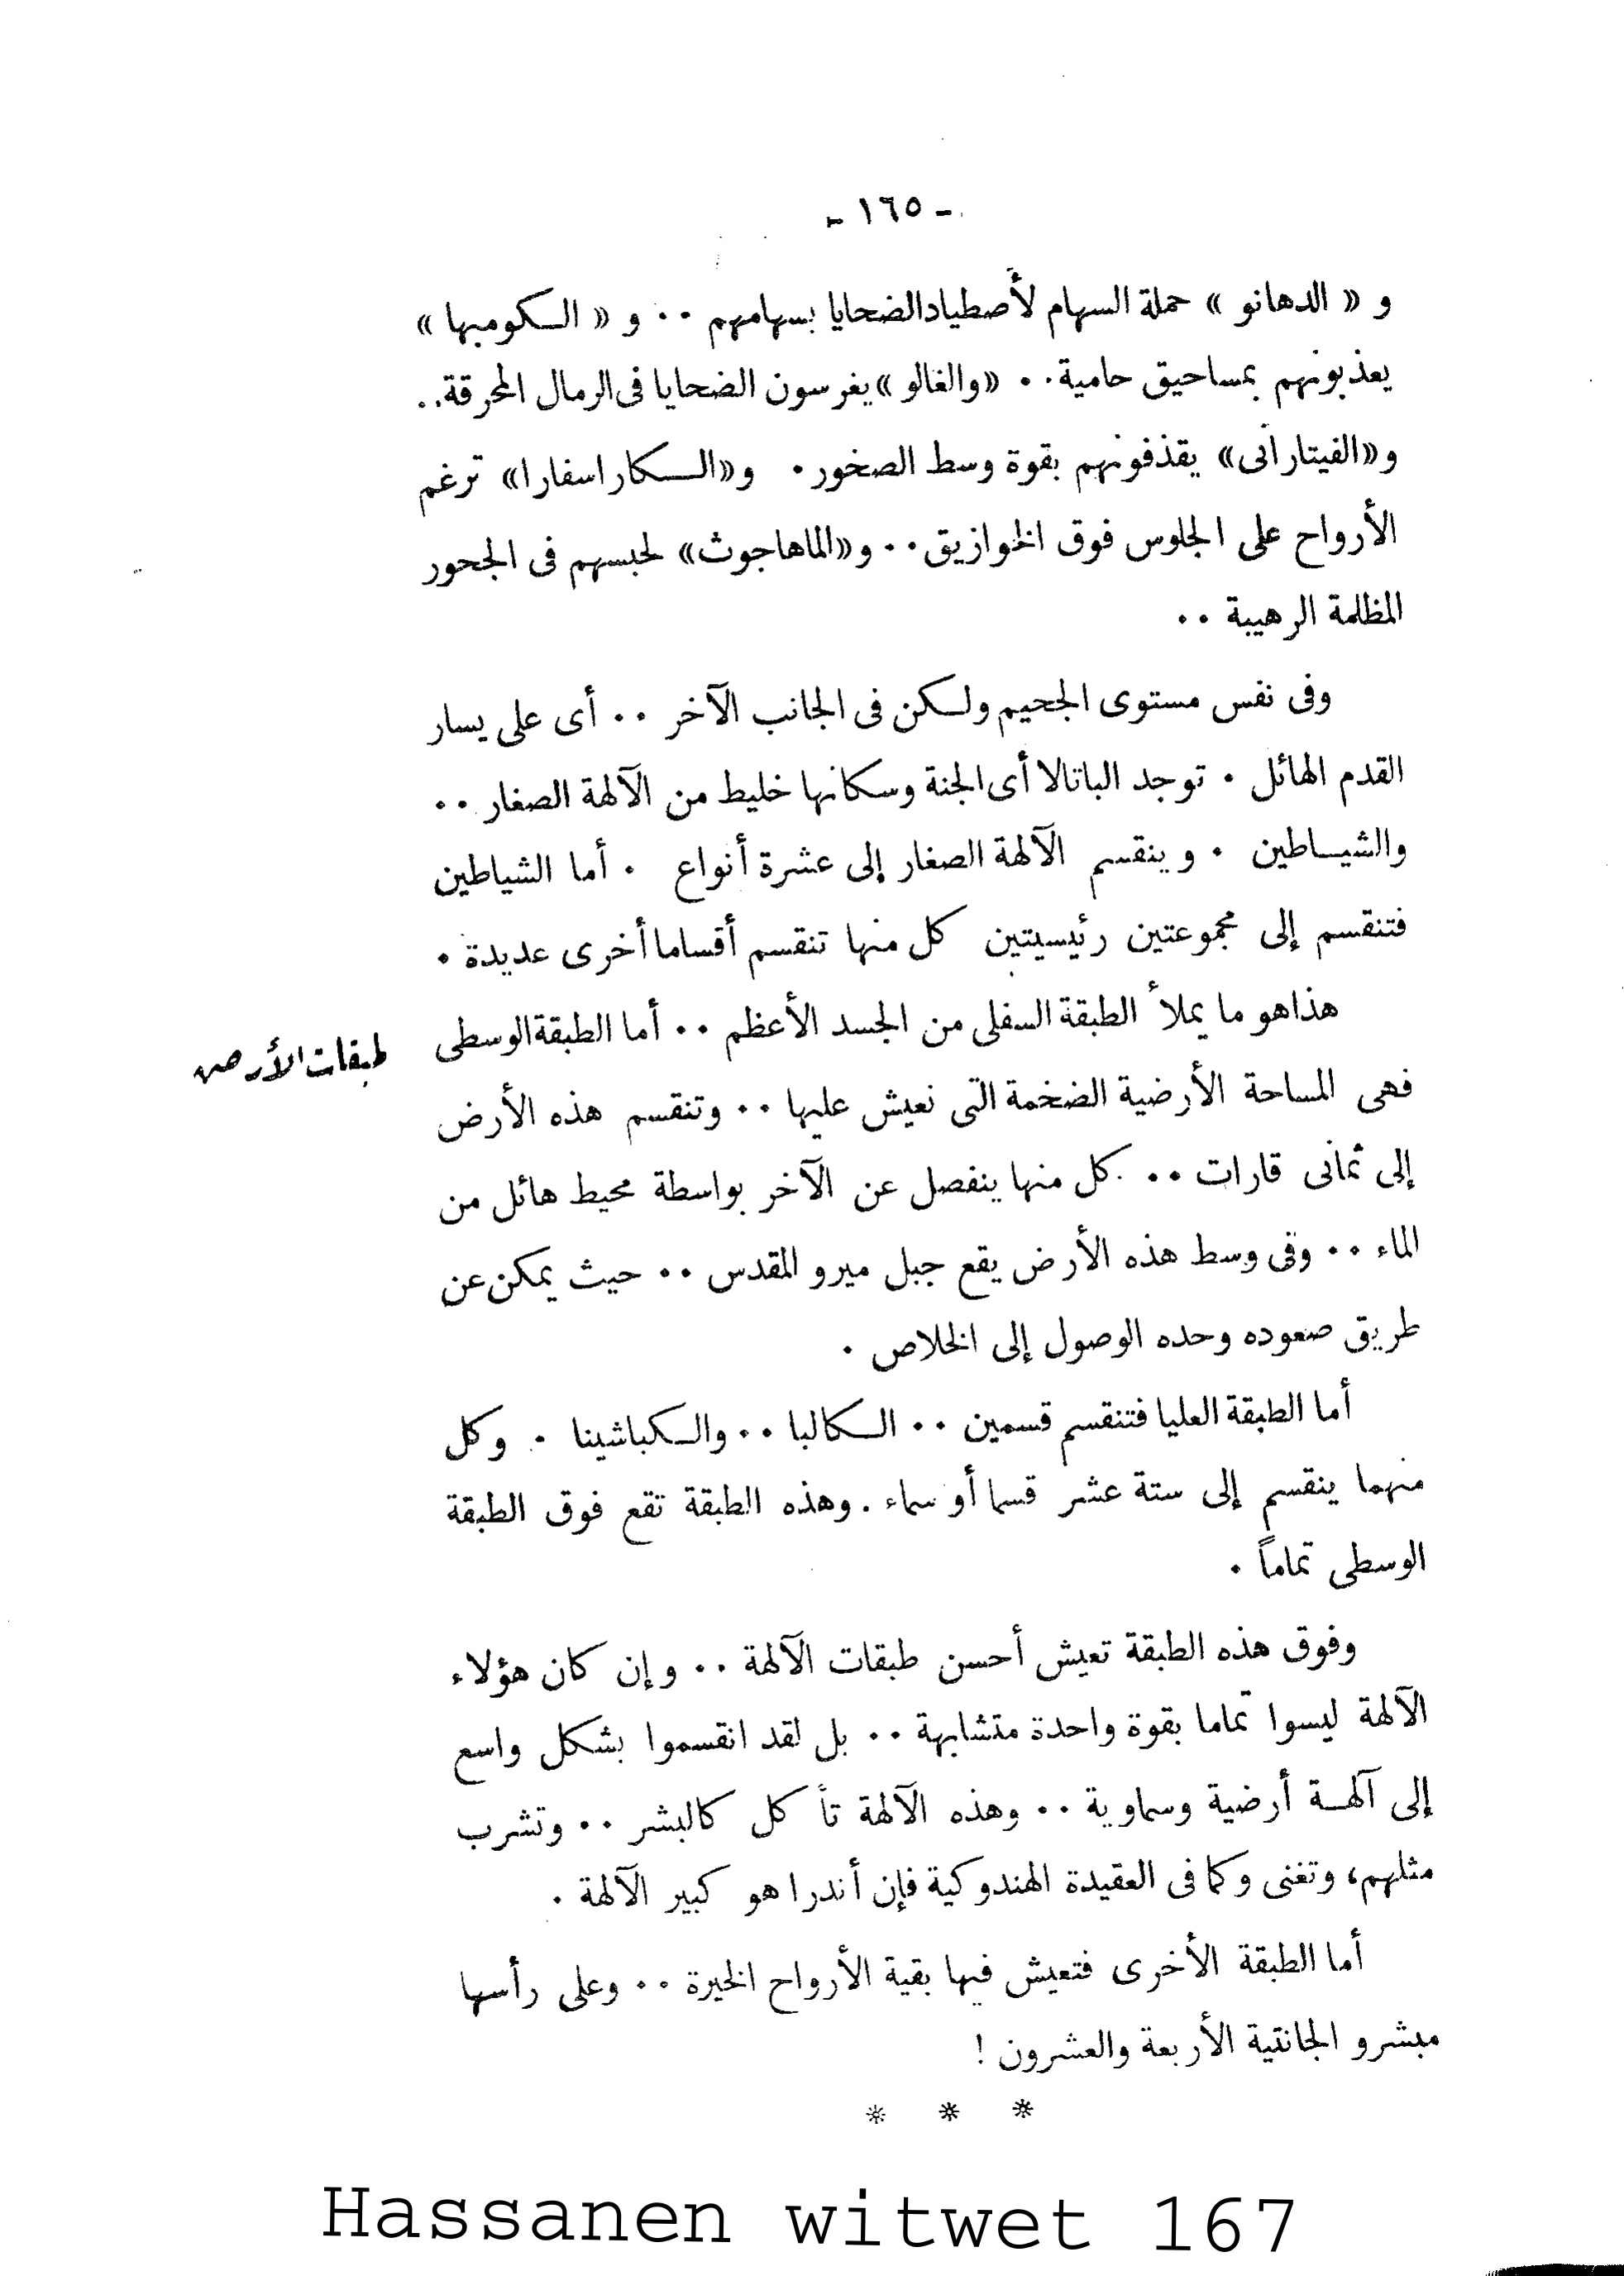 - ١٦٥ -
و « الدهانو » حملة السهام لأصطياد الضحايا بسهامهم .. و « الكومبها »
يعذبونهم بمساحيق حامية .. «والغالو» يغرسون الضحايا فى الرمال المحرقة ..
و«الفيتارانى» يقذفونهم بقوة وسط الصخور . و«الكاراسفارا» ترغم
الأرواح على الجلوس فوق الخوازيق .. و«الماهاجوث» لحبسهم فى الجحور
المظلمة الرهيبة ..
وفى نفس مستوى الجحيم ولكن فى الجانب الآخر .. أى على يسار
القدم الهائل . توجد الباتالا أى الجنة وسكانها خليط من الآلهة الصغار ..
والشياطين . وينقسم الآلهة الصغار إلى عشرة أنواع . أما الشياطين
فتنقسم إلى مجموعتين رئيسيتين كل منها تنقسم أقساما أخرى عديدة .
هذا هو ما يملأ الطبقة السفلى من الجسد الأعظم .. أما الطبقة الوسطى
طبقات الأرض
فهى المساحة الأرضية الضخمة التى نعيش عليها .. وتنقسم هذه الأرض
إلى ثمانى قارات .. كل منها ينفصل عن الآخر بواسطة محيط هائل من
الماء .. وفى وسط هذه الأرض يقع جبل ميرو المقدس .. حيث يمكن عن
طريق صعوده وحده الوصول إلى الخلاص .
أما الطبقة العليا فتنقسم قسمين .. الكالبا .. والكباشينا . وكل
منهما ينقسم إلى ستة عشر قسما أو سماء . وهذه الطبقة تقع فوق الطبقة
الوسطى تماماً .
وفوق هذه الطبقة تعيش أحسن طبقات الآلهة .. وإن كان هؤلاء
الآلهة ليسوا تماما بقوة واحدة متشابهة .. بل لقد انقسموا بشكل واسع
إلى آلهة أرضية وسماوية .. وهذه الآلهة تأكل كالبشر .. وتشرب
مثلهم، وتغنى وكما فى العقيدة الهندوكية فإن أندرا هو كبير الآلهة .
أما الطبقة الأخرى فتعيش فيها بقية الأرواح الخيرة .. وعلى رأسها
مبشرو الجانتية الأربعة والعشرون !
* * *
Hassanen witwet 167